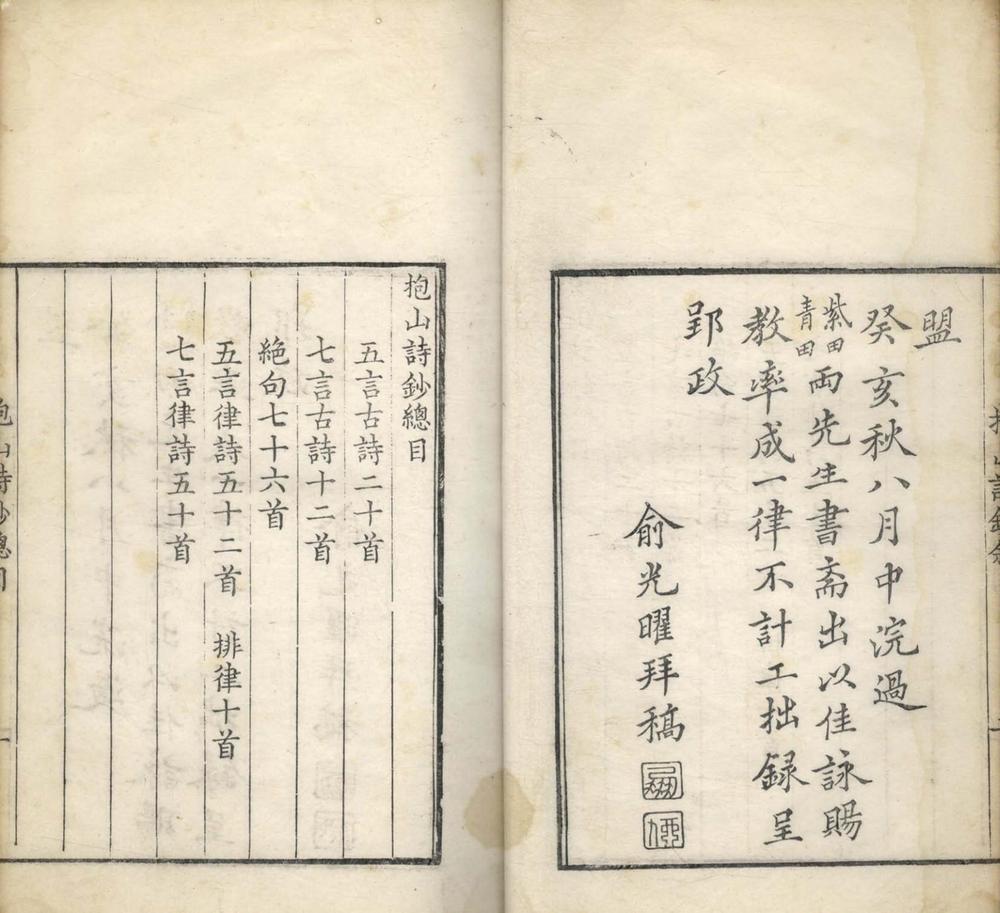 盟
癸亥秋八月中浣過
紫田
青田
兩先生書斋出以佳詠賜
教率成一律不計工拙録呈
郢政
俞光曜拜稿
抱山詩鈔總目
五言古詩二十首
七言古詩十二首
絶句七十六首
五言律詩五十二首 排律十首
七言律詩五十首
抱山詩鈔總目
一